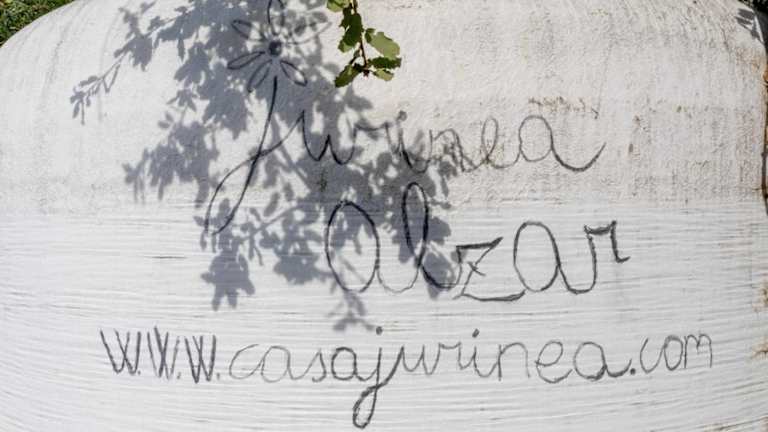 Jurinea
alzar
www.casajurinea.com